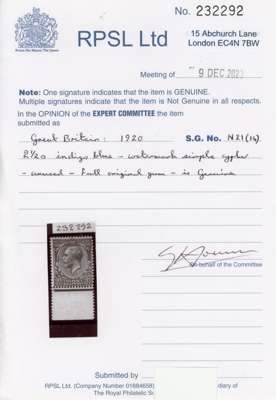 No. 232292
RPSL Ltd
15 Abchurch Lane
London EC4N 7BW
Meeting of 9 DEC 2021
Note: One signature indicates that the item is GENUINE.
Multiple signatures indicate that the item is Not Genuine in all respects.
In the OPINION of the EXPERT COMMITTEE the item
submitted as
Great Britain: 1920 S.G. No. N21(14)
2½D indigo blue - watermark simple cypher
- unused - full original gum - is Genuine
232292
On behalf of the Committee
Submitted by
RPSL Ltd. (Company Number 01684658)
The Royal Philatelic So